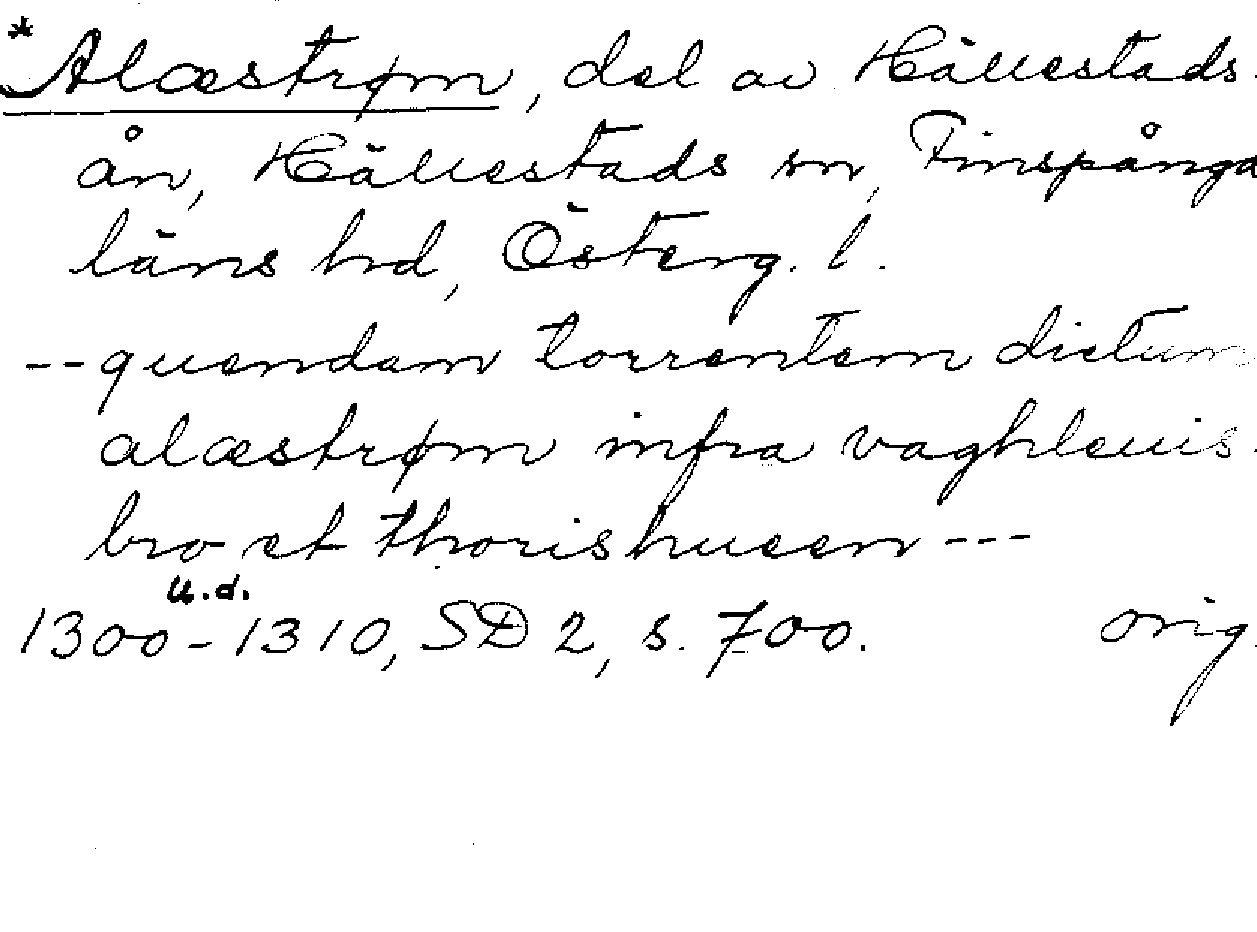 *Alæstrøm, del av Hällestads-
ån, Hällestads sn, Finspånga
läns hd, Österg. l.
--quendam torrentem dictum
alæstrøm infra vaghleuis-
bro et thorishusen---
u.d.
1300-1310, SD 2, s. 700. orig.